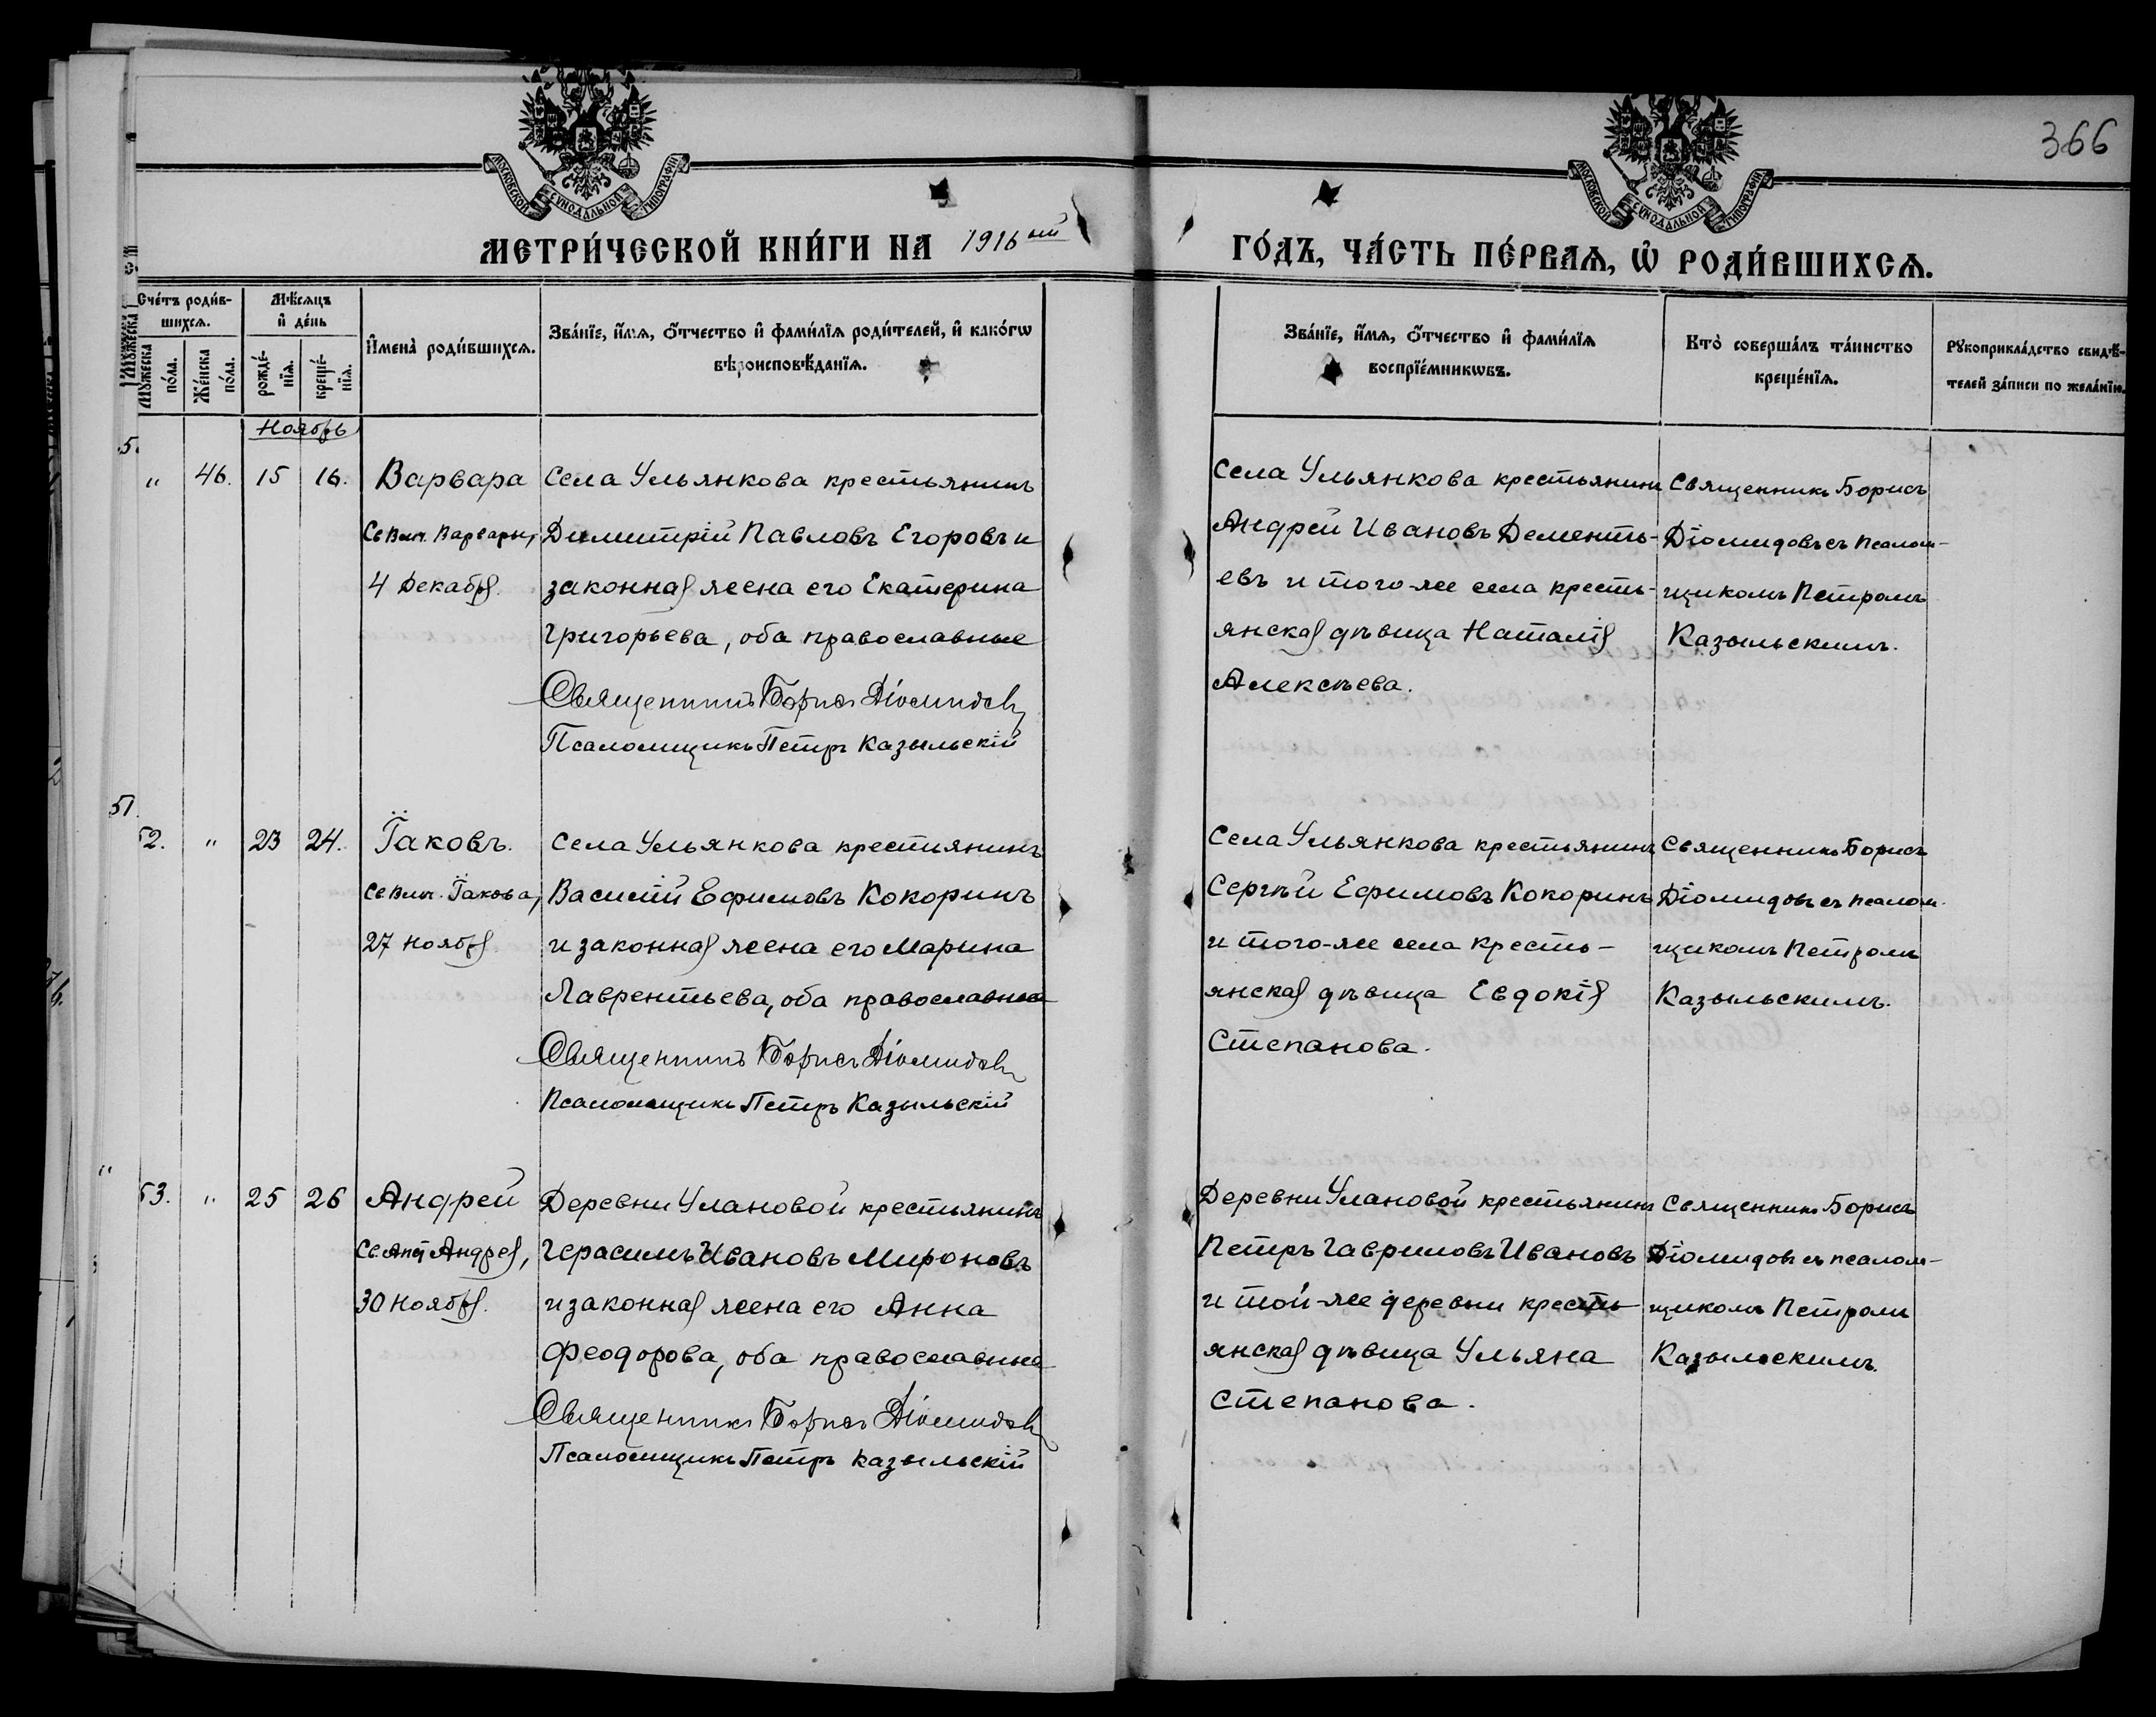 366
МОСКОВСКОЙ СѴНОДАЛЬНОЙ ТИПОГРАФІИ
МОСКОВСКОЙ СѴНОДАЛЬНОЙ ТИПОГРАФІИ
МЕТРИ́ЧЕСКОЙ КНИ́ГИ НА 1916ый ГО́ДЪ, ЧА́СТЬ ПЕ́РВАѦ, Ѡ҆ РОДИ́ВШИХСѦ.
Сче́тъ роди́в-
шихсѧ.
Мꙋ́жеска по́ла.
Же́нска по́ла.
Мѣ́сѧцъ
и҆ де́нь
рожде́-
нїѧ.
креще́-
нїѧ.
И҆мена̀ роди́вшихсѧ.
Зва́нїе, и҆́мѧ, ѻ҆́тчество и҆ фами́лїѧ роди́телей, и҆ како́гѡ
вѣроисповѣ́данїѧ.
Зва́нїе, и҆́мѧ, ѻ҆́тчество и҆ фами́лїѧ
воспрїе́мникѡвъ.
Кто̀ соверша́лъ та́инство
креще́нїѧ.
Рꙋкоприкла́дство свидѣ́-
телей за́писи по жела́нїю.
Ноябрь
" 46. 15 16. Варвара
Св Вмч. Варвары,
4 Декабря.
Села Ульянкова крестьянинъ
Димитрій Павловъ Егоровъ и
законная жена его Екатерина
Григорьева, оба православные
Священникъ Борисъ Діомидовъ
Псаломщикъ Петръ Казыльскій
Села Ульянкова крестьянинъ
Андрей Ивановъ Дементь-
евъ и того-же села кресть-
янская дѣвица Наталія
Алексѣева.
Священникъ Борисъ
Діомидовъ съ псалом-
щикомъ Петромъ
Казыльскимъ.
52. " 23 24. Іаковъ.
Св Вмч. Іакова,
27 Ноября.
Села Ульянкова крестьянинъ
Василій Ефимовъ Кокоринъ
и законная жена его Марина
Лаврентьева, оба православные
Священникъ Борисъ Діомидовъ
Псаломщикъ Петръ Казыльскій
Села Ульянкова крестьянинъ
Сергѣй Ефимовъ Кокоринъ
и того-же села кресть-
янская дѣвица Евдокія
Степанова.
Священникъ Борисъ
Діомидовъ съ псалом-
щикомъ Петромъ
Казыльскимъ.
53. " 25 26 Андрей
Св Ап Андрея,
30 Ноября.
Деревни Улановой крестьянинъ
Герасимъ Ивановъ Мироновъ
и законная жена его Анна
Феодорова, оба православные
Священникъ Борисъ Діомидовъ
Псаломщикъ Петръ Казыльскій
Деревни Улановой крестьянинъ
Петръ Гавриловъ Ивановъ
и той-же деревни кресть
янская дѣвица Ульяна
Степанова.
Священникъ Борисъ
Діомидовъ съ псалом-
щикомъ Петромъ
Казыльскимъ.